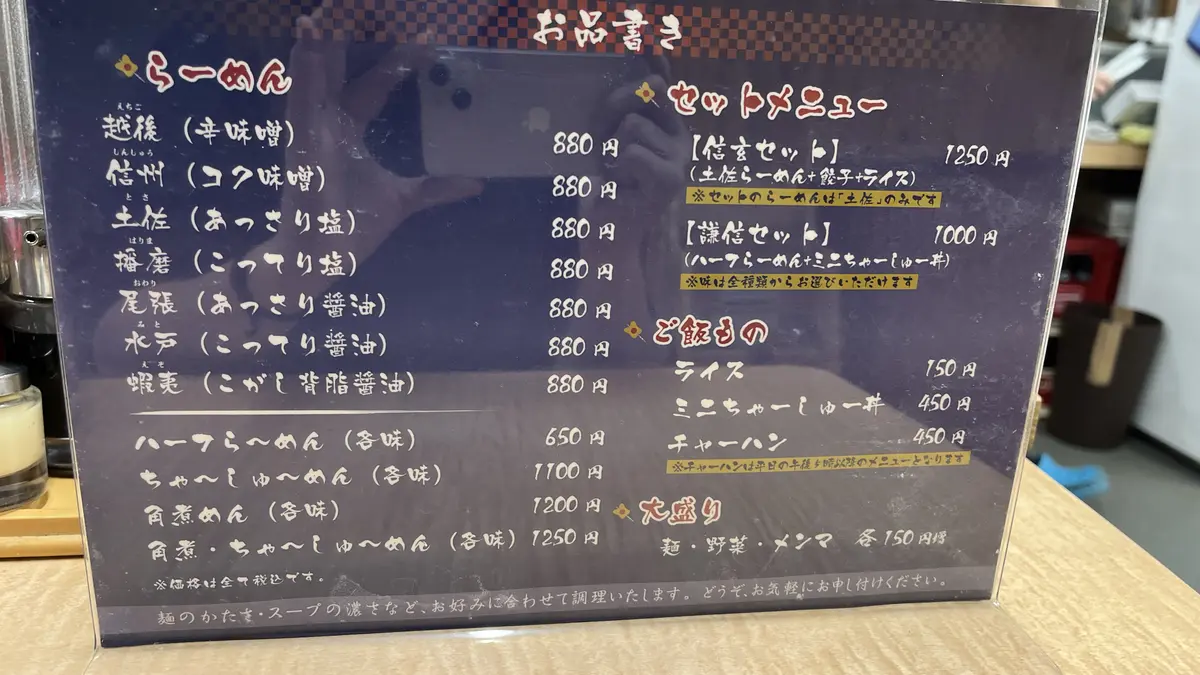 お品書き
らーめん
えちご
越後（辛味噌） 880円
しんしゅう
信州（コク味噌） 880円
とさ
土佐（あっさり塩） 880円
はりま
播磨（こってり塩） 880円
おわり
尾張（あっさり醤油） 880円
みと
水戸（こってり醤油） 880円
えぞ
蝦夷（こがし背脂醤油） 880円
ハーフら〜めん（各味） 650円
ちゃ〜しゅ〜めん（各味） 1100円
角煮めん（各味） 1200円
角煮・ちゃ〜しゅ〜めん（各味） 1250円
※価格は全て税込です。
セットメニュー
【信玄セット】 1250円
（土佐らーめん+餃子+ライス）
※セットのらーめんは「土佐」のみです
【謙信セット】 1000円
（ハーフらーめん+ミニちゃーしゅー丼）
※味は全種類からお選びいただけます
ご飯もの
ライス 150円
ミニちゃーしゅー丼 450円
チャーハン 450円
※チャーハンは平日の午後5時以降のメニューとなります
大盛り
麺・野菜・メンマ 各150円増
麺のかたさ・スープの濃さなど、お好みに合わせて調理いたします。どうぞ、お気軽にお申し付けください。